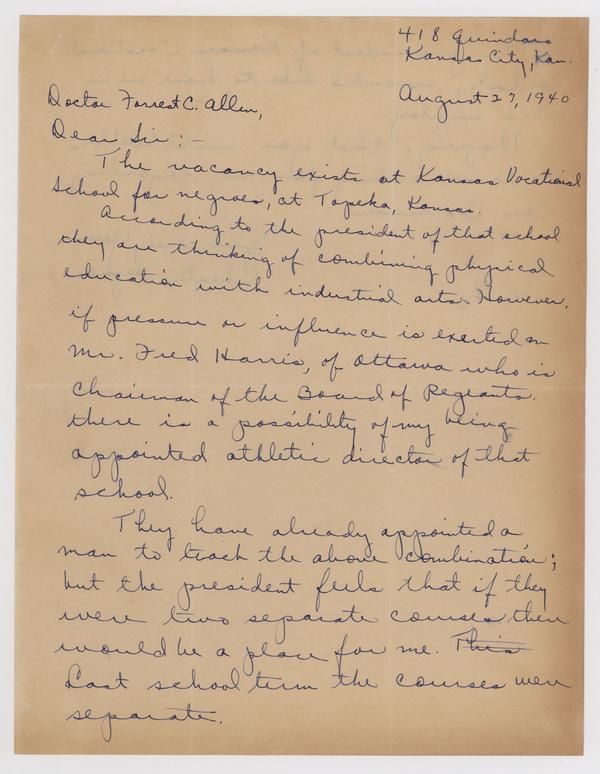 418 Quindaro
Kansas City, Kan.
August 27, 1940
Doctor Forrest C. Allen,
Dear Sir:
The vacancy exists at Kansas Vocational
School for negroes, at Topeka, Kansas.
According to the president of that school
they are thinking of combining physical
education with industrial arts. However,
if pressure or influence is exerted on
Mr. Fred Harris, of Ottawa who is
Chairman of the Board of Regeants.
there is a possibility of my being
appointed athletic director of that
school.
They have already appointed a
man to teach the above combination;
but the president feels that if they
were two separate courses there
would be a place for me. This
Last school term the courses were
separate.